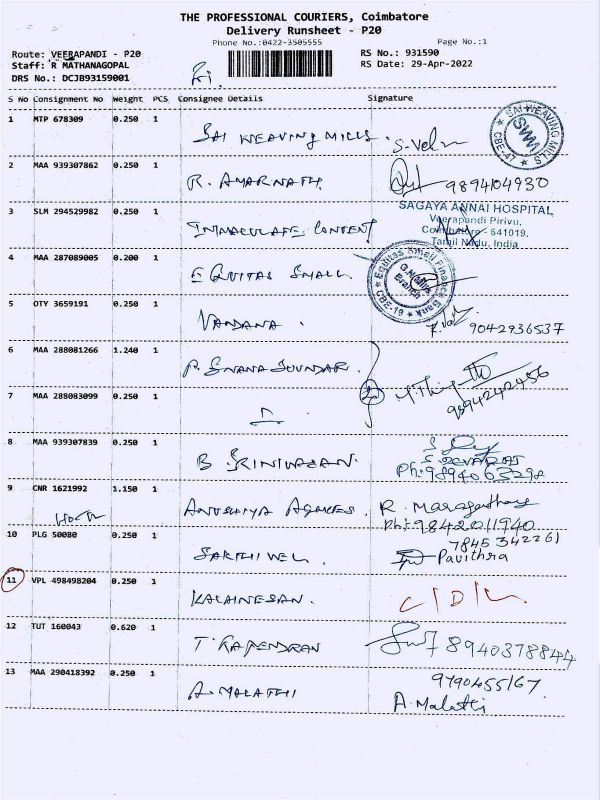 THE PROFESSIONAL COURIERS, Coimbatore
Delivery Runsheet - P20
Phone No.:0422-3505555 Page No.:1
Route: VEERAPANDI - P20 RS No.: 931590
Staff: R MATHANAGOPAL RS Date: 29-Apr-2022
DRS No.: DCJB93159001
S No Consignment No Weight PCS Consignee Details Signature
1 MTP 678309 0.250 1 SAI WEAVING MILLS. S.Vel
SAI WEAVING MILLS SWM CBE-47
2 MAA 939307862 0.250 1 R. AMARNATH. 9894104930
3 SLM 294529982 0.250 1 IMMACULATE CONTENT
SAGAYA ANNAI HOSPITAL
Veerapandi Pirivu,
Coimbatore - 641019,
Tamil Nadu, India
4 MAA 287089005 0.200 1 EQUITAS SMALL.
Equitas Small Finance Bank Branch CBE-19
5 OTY 3659191 0.250 1 VANDANA. 9042936537
6 MAA 288081266 1.240 1
7 MAA 288083099 0.250 1 9894242456
8 MAA 939307839 0.250 1 B SRINIVASAN.
S. DEVARAJ
Ph: 9894063298
9 CNR 1621992 1.150 1 ANUSHIYA AGENCIES R.
Ph: 9842011940
7845342261
10 PLG 50080 0.250 1 SAKTHIVEL. Pavithra
11 VPL 498498204 0.250 1 KALAINESAN.
12 TUT 160043 0.620 1 T. RAJENDRAN 8940378844
13 MAA 290418392 0.250 1 A. MALATHI 9790455167
A. Malathi